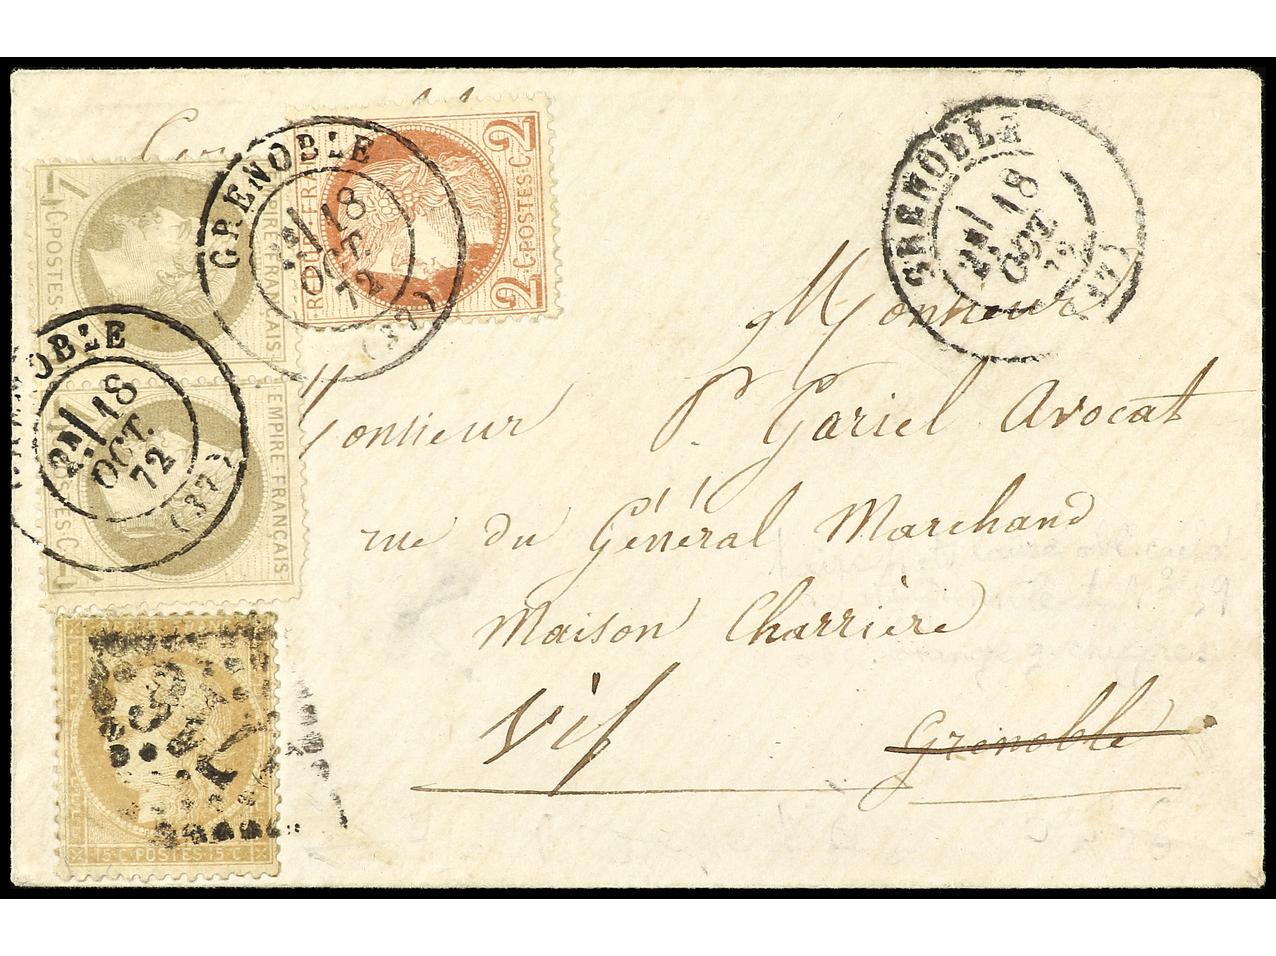 GRENOBLE
18
OCT.
72
(37)
2 C. POSTES. C. 2
RÉPUB. FRANC.
GRENOBLE
2E/ 18
OCT.
72
(37)
4 C. POSTES
EMPIRE FRANÇAIS
Monsieur
GRENOBLE
2E/ 18
OCT.
72
(37)
EMPIRE FRANÇAIS
Monsieur P. Gariel Avocat
rue du Général Marchand
Maison Charrière
Vif
Grenoble
15 C. POSTES 15 C